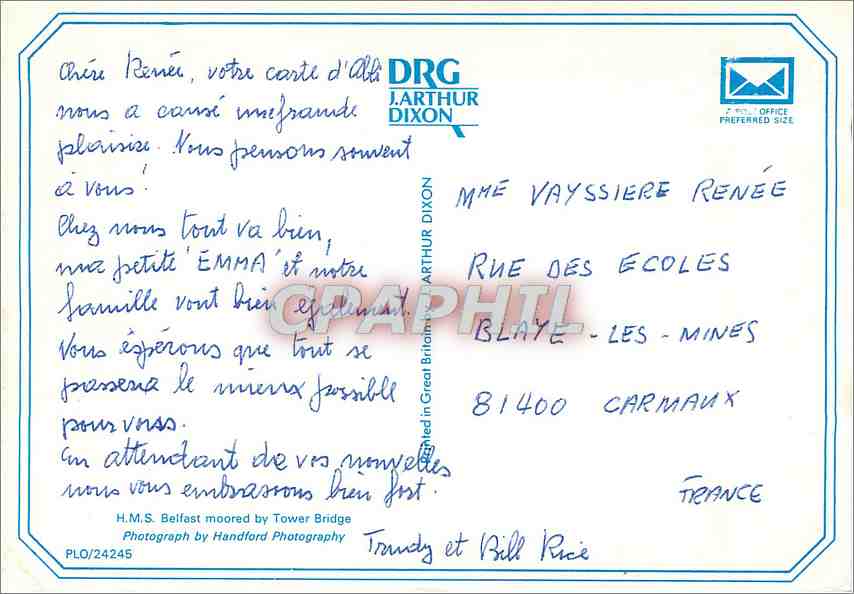 Chère Renée, votre carte d'Albi
nous a causé une grande
plaisir. Nous pensons souvent
à vous!
Chez nous tout va bien,
ma petite "EMMA" et notre
famille vont bien également.
Nous éspérons que tout se
passera le mieux possible
pour vous.
En attendant de vos nouvelles
nous vous embrassons bien fort.
Trudy et Bill Rice
H.M.S. Belfast moored by Tower Bridge
Photograph by Handford Photography
PLO/24245
DRG
J.ARTHUR
DIXON
Printed in Great Britain ARTHUR DIXON
POST OFFICE
PREFERRED SIZE
MME VAYSSIERE RENÉE
RUE DES ECOLES
BLAYE-LES-MINES
81400 CARMAUX
FRANCE
CPAPHIL